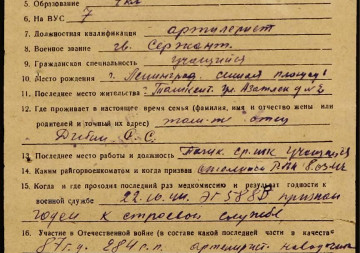 5. Образование 9 кл
6. На ВУС 7
7. Должностная квалификация артиллерист
8. Военное звание гв. Сержант.
9. Гражданская специальность учащийся
10. Место рождения г. Ленинград. площадь
11. Последнее место жительства г. Ташкент ул.
12. Где проживает в настоящее время семья (фамилия, имя и отчество жены или
родителей и точный их адрес) там-же отец
С. С.
13. Последнее место работы и должность учащийся
14. Каким райгорвоенкоматом и когда призван
15. Когда и где проходил последний раз медкомиссию и результат годности к
военной службе 22.10.44. ЭГ признан
годен к строевой службе
16. Участие в Отечественной войне (в составе какой последней части в качестве
87 г.д. с.п. артиллерист наводчик